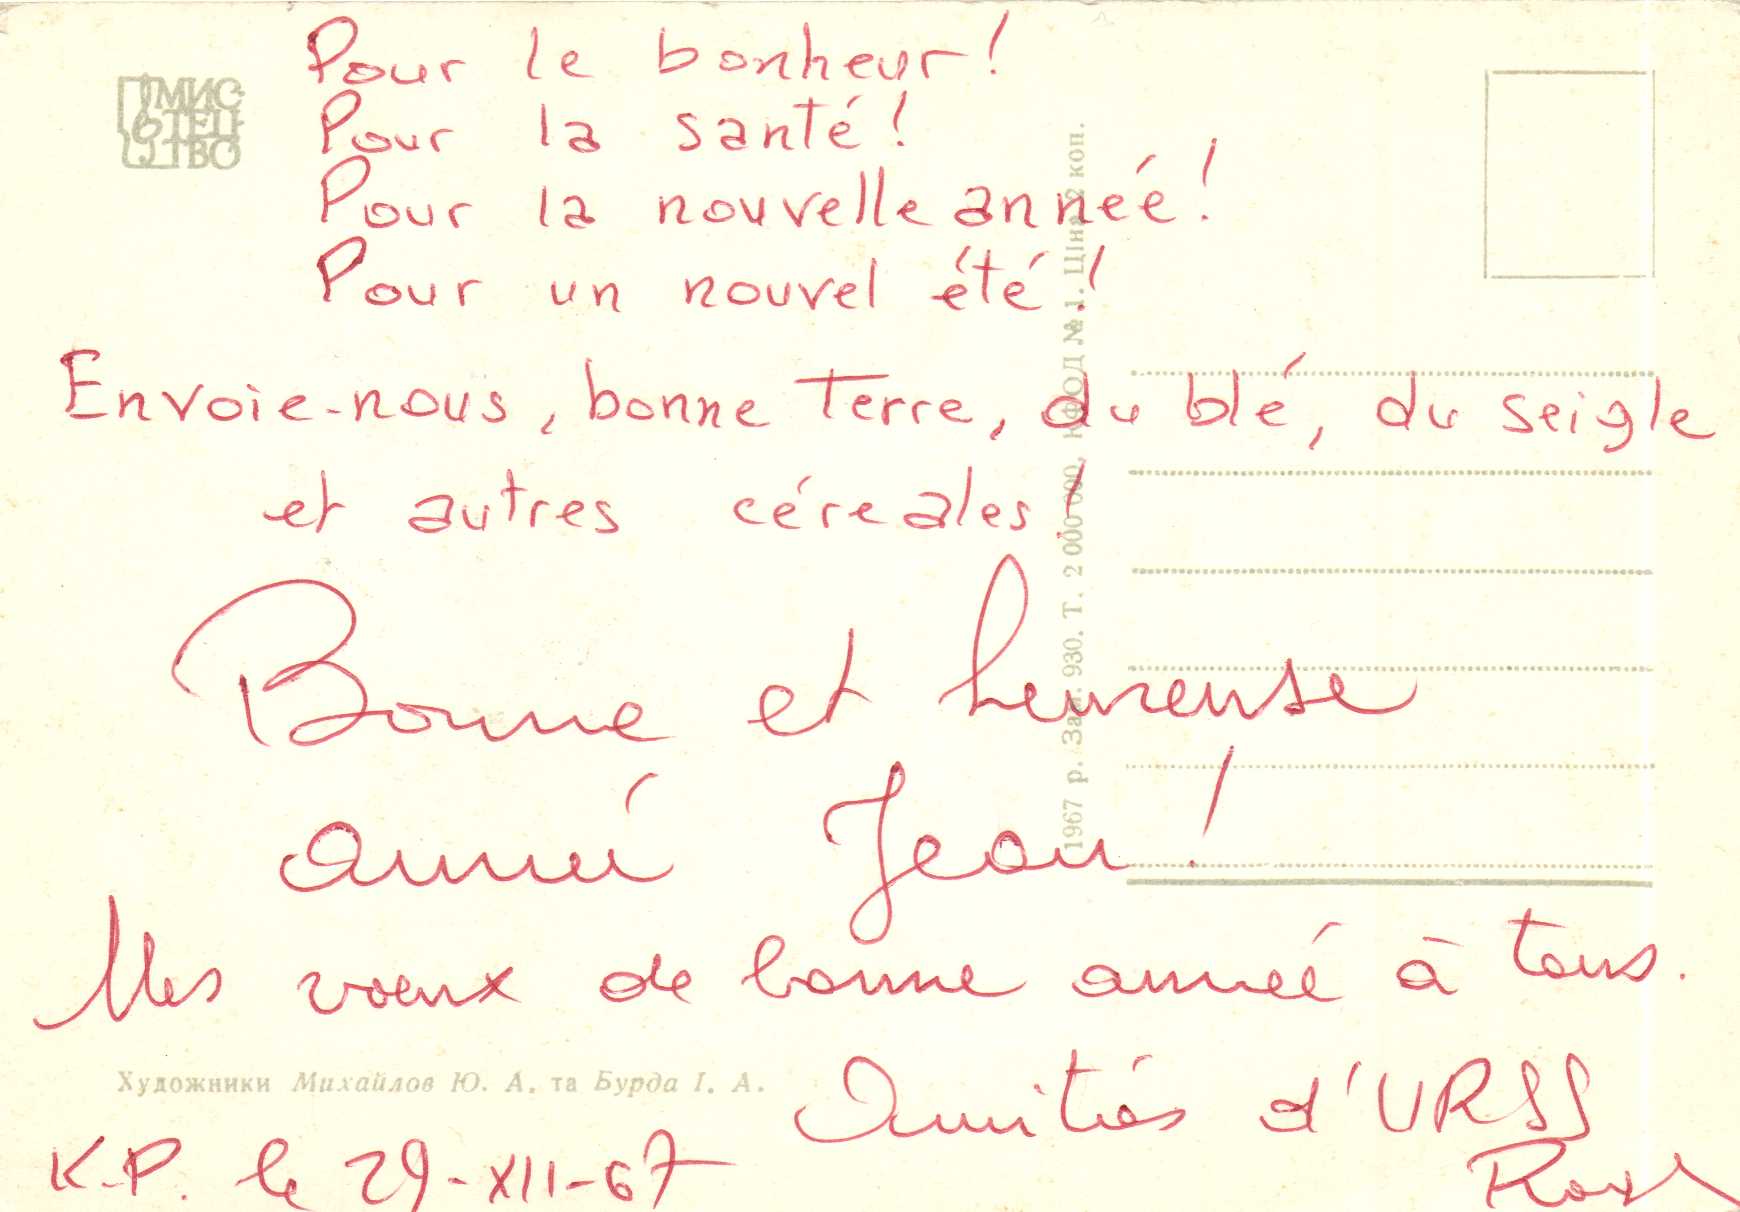 Pour le bonheur!
Pour la santé!
Pour la nouvelle année!
Pour un nouvel été!
Envoie-nous, bonne Terre, du blé, du seigle
et autres céreales!
Bonne et heureuse
année Jean!
Mes voeux de bonne année à tous.
Amitiés d'URSS
K.P. le 29-XII-67
МИС
ТЕЦ
ТВО
Художники Михайлов Ю. А. та Бурда І. А.
1967 р. Зам. 930. Т. 2 000 000, КФОД № 1. Ціна 2 коп.